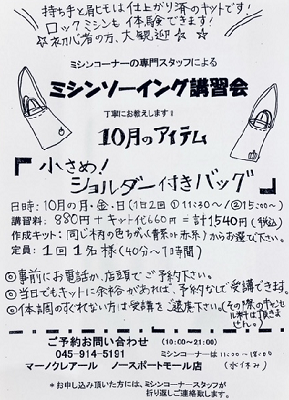 持ち手と肩ヒモは仕上がり済のキットです!
ロックミシンも体験できます!
☆初心者の方、大歓迎☆
ミシンコーナーの専門スタッフによる
ミシンソーイング講習会
丁寧にお教えします!
10月のアイテム
「小さめ!
ショルダー付きバッグ」
日時:10月の月・金・日(1日2回 ①11:30〜/②15:00〜)
講習料:880円+キット代660円=計1540円(税込)
作成キット:同じ柄の色ちがい(青系or赤系)からお選び下さい。
定員:1回1名様(40分〜1時間)
◎事前にお電話か、店頭でご予約下さい。
◎当日でもキットに余裕があれば、予約なしで受講できます。
◎体調のすぐれない方は受講をご遠慮下さい。(その際のキャンセル料は頂きません。)
ご予約お問い合わせ (10:00〜21:00)
045-914-5191 ミシンコーナーは11:00〜18:00
マーノクレアール ノースポートモール店 (水イ木み)
*お申し込み頂いた方には、ミシンコーナースタッフが
折り返しご連絡致します。